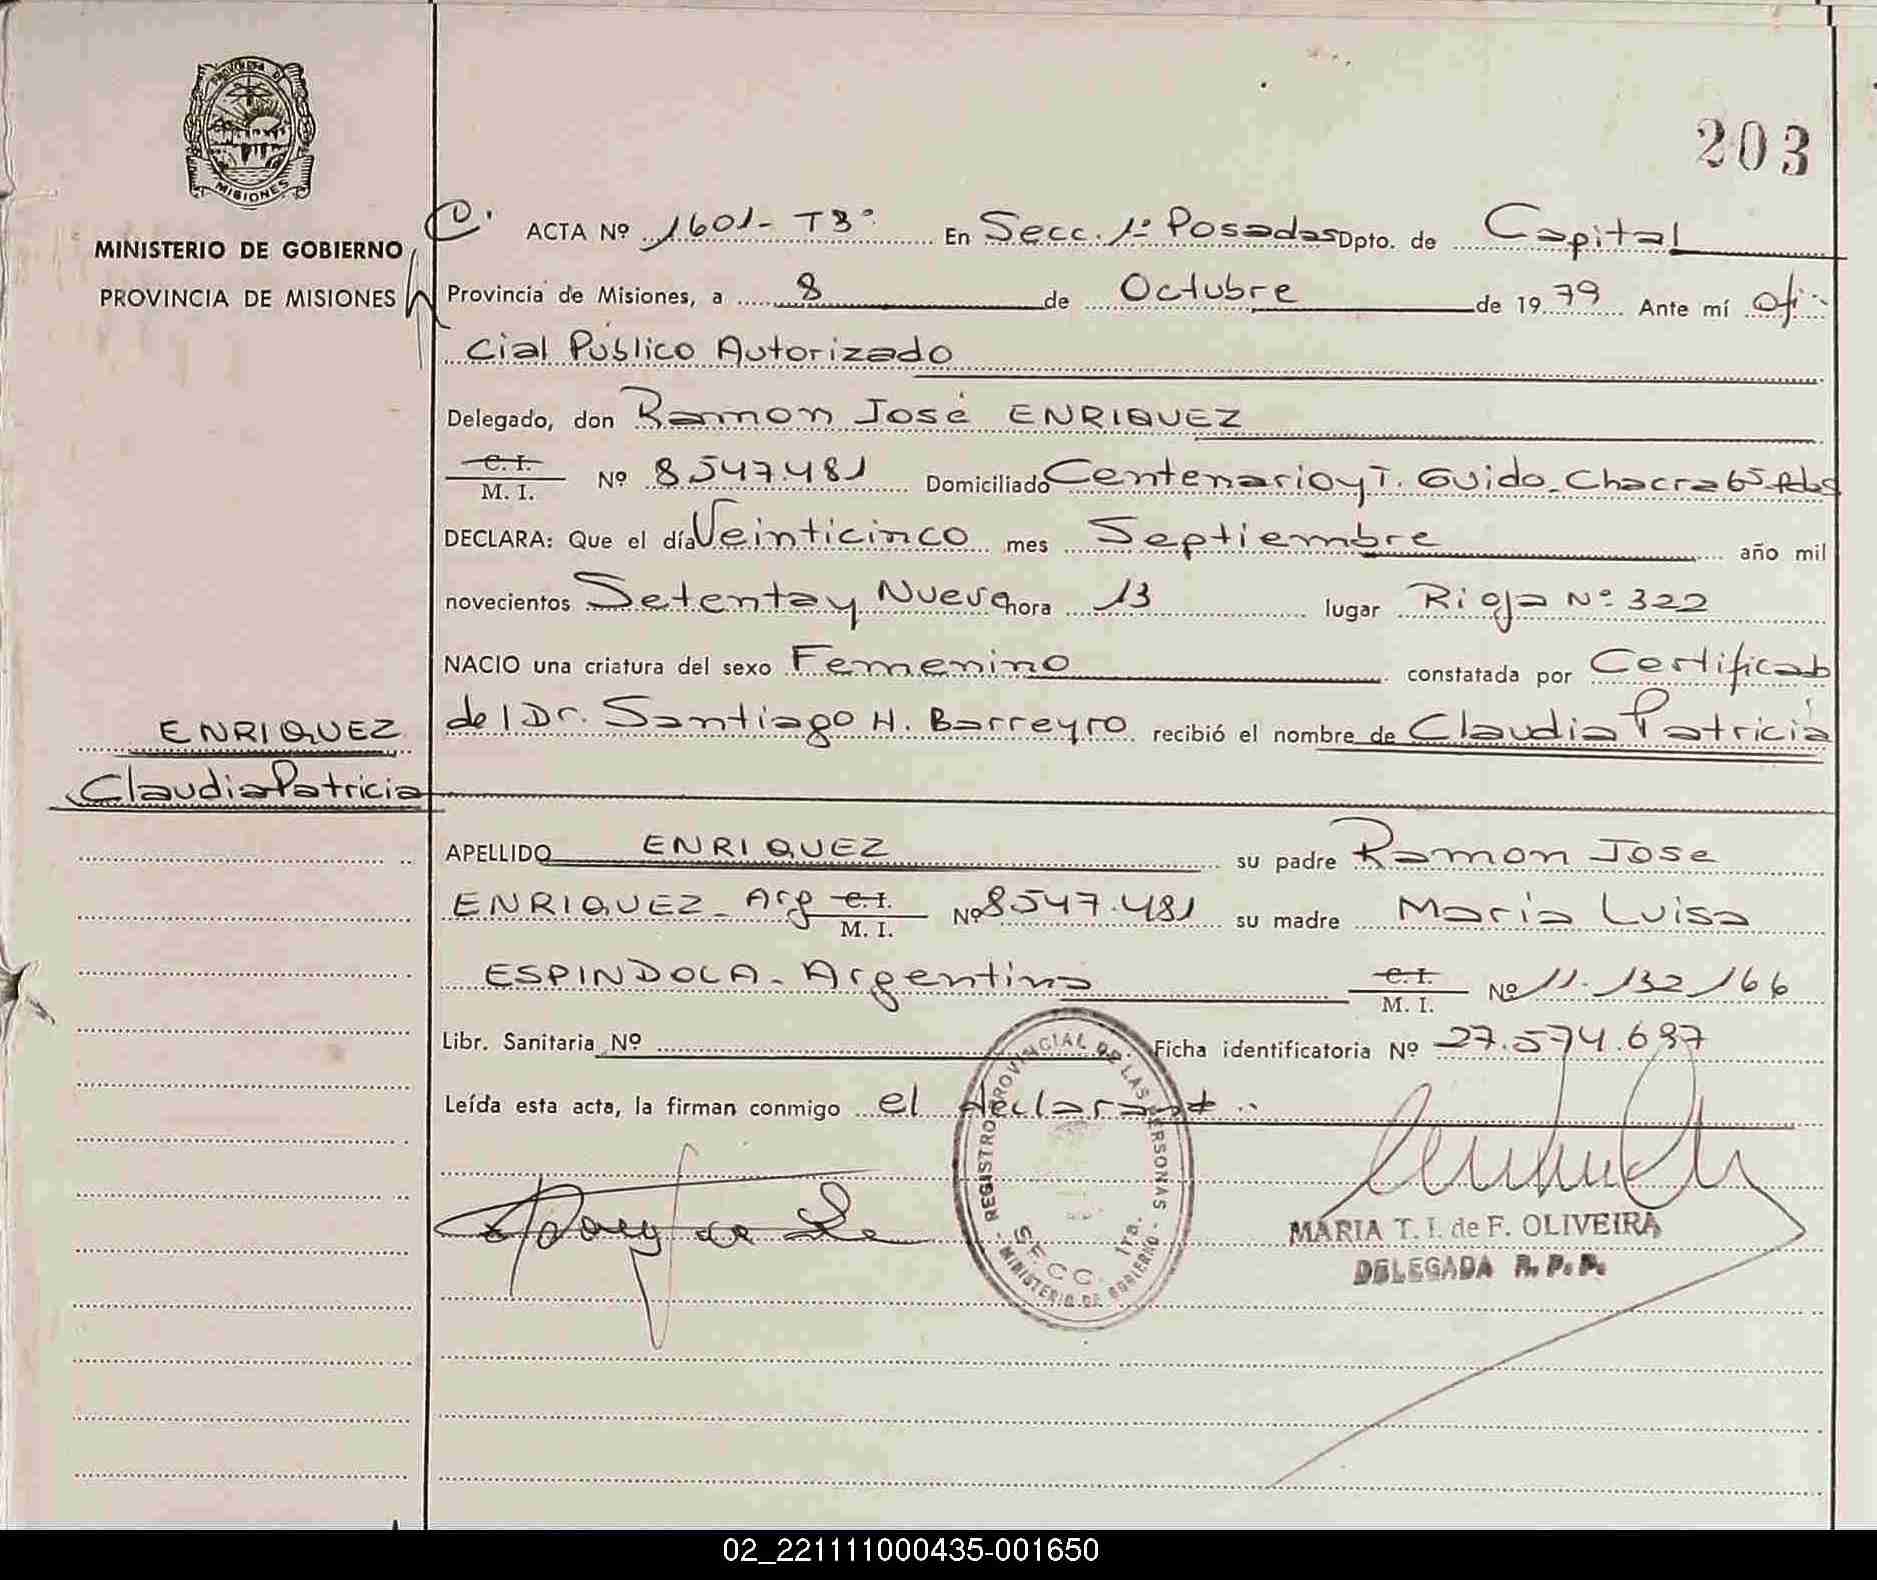 PROVINCIA DE
MISIONES
MINISTERIO DE GOBIERNO
PROVINCIA DE MISIONES
203
ACTA Nº 1601- T3º En Secc. 1ª Posadas Dpto. de Capital
Provincia de Misiones, a 8 de Octubre de 1979 Ante mí Ofi-
cial Público Autorizado
Delegado, don Ramon José ENRIQUEZ
C. I.
M. I. Nº 8.547.481 Domiciliado Centenario y T. Guido - Chacra 65 Pdas
DECLARA: Que el día Veinticinco mes Septiembre año mil
novecientos Setenta y Nueve hora 13 lugar Rioja Nº 322
NACIO una criatura del sexo Femenino constatada por Certificado
del Dr. Santiago H. Barreyro recibió el nombre de Claudia Patricia
ENRIQUEZ
Claudia Patricia
APELLIDO ENRIQUEZ su padre Ramon Jose
ENRIQUEZ - Arg C. I.
M. I. Nº 8547.481 su madre Maria Luisa
ESPINDOLA - Argentina C. I.
M. I. Nº 11.132166
Libr. Sanitaria Nº Ficha identificatoria Nº 27.574.697
Leída esta acta, la firman conmigo el declarante.
REGISTRO PROVINCIAL DE LAS PERSONAS
SECC. 1ra.
- MINISTERIO DE GOBIERNO -
MARIA T. I. de F. OLIVEIRA
DELEGADA R. P. P.
02_221111000435-001650